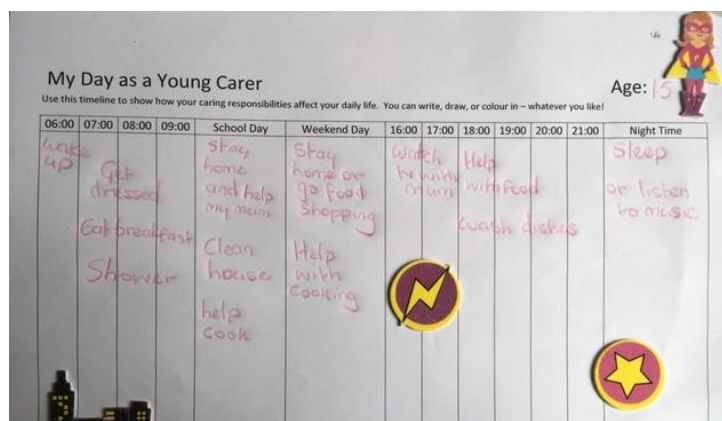 My Day as a Young Carer
Age: 15
Use this timeline to show how your caring responsibilities affect your daily life. You can write, draw, or colour in – whatever you like!
06:00 07:00 08:00 09:00 School Day Weekend Day 16:00 17:00 18:00 19:00 20:00 21:00 Night Time
wake
up
Get
dressed
Eat breakfast
Shower
Stay
home
and help
my mum
Clean
house
help
cook
Stay
home or
go food
shopping
Help
with
cooking
watch
tv with
mum
Help
with food
wash dishes
Sleep
or listen
to music